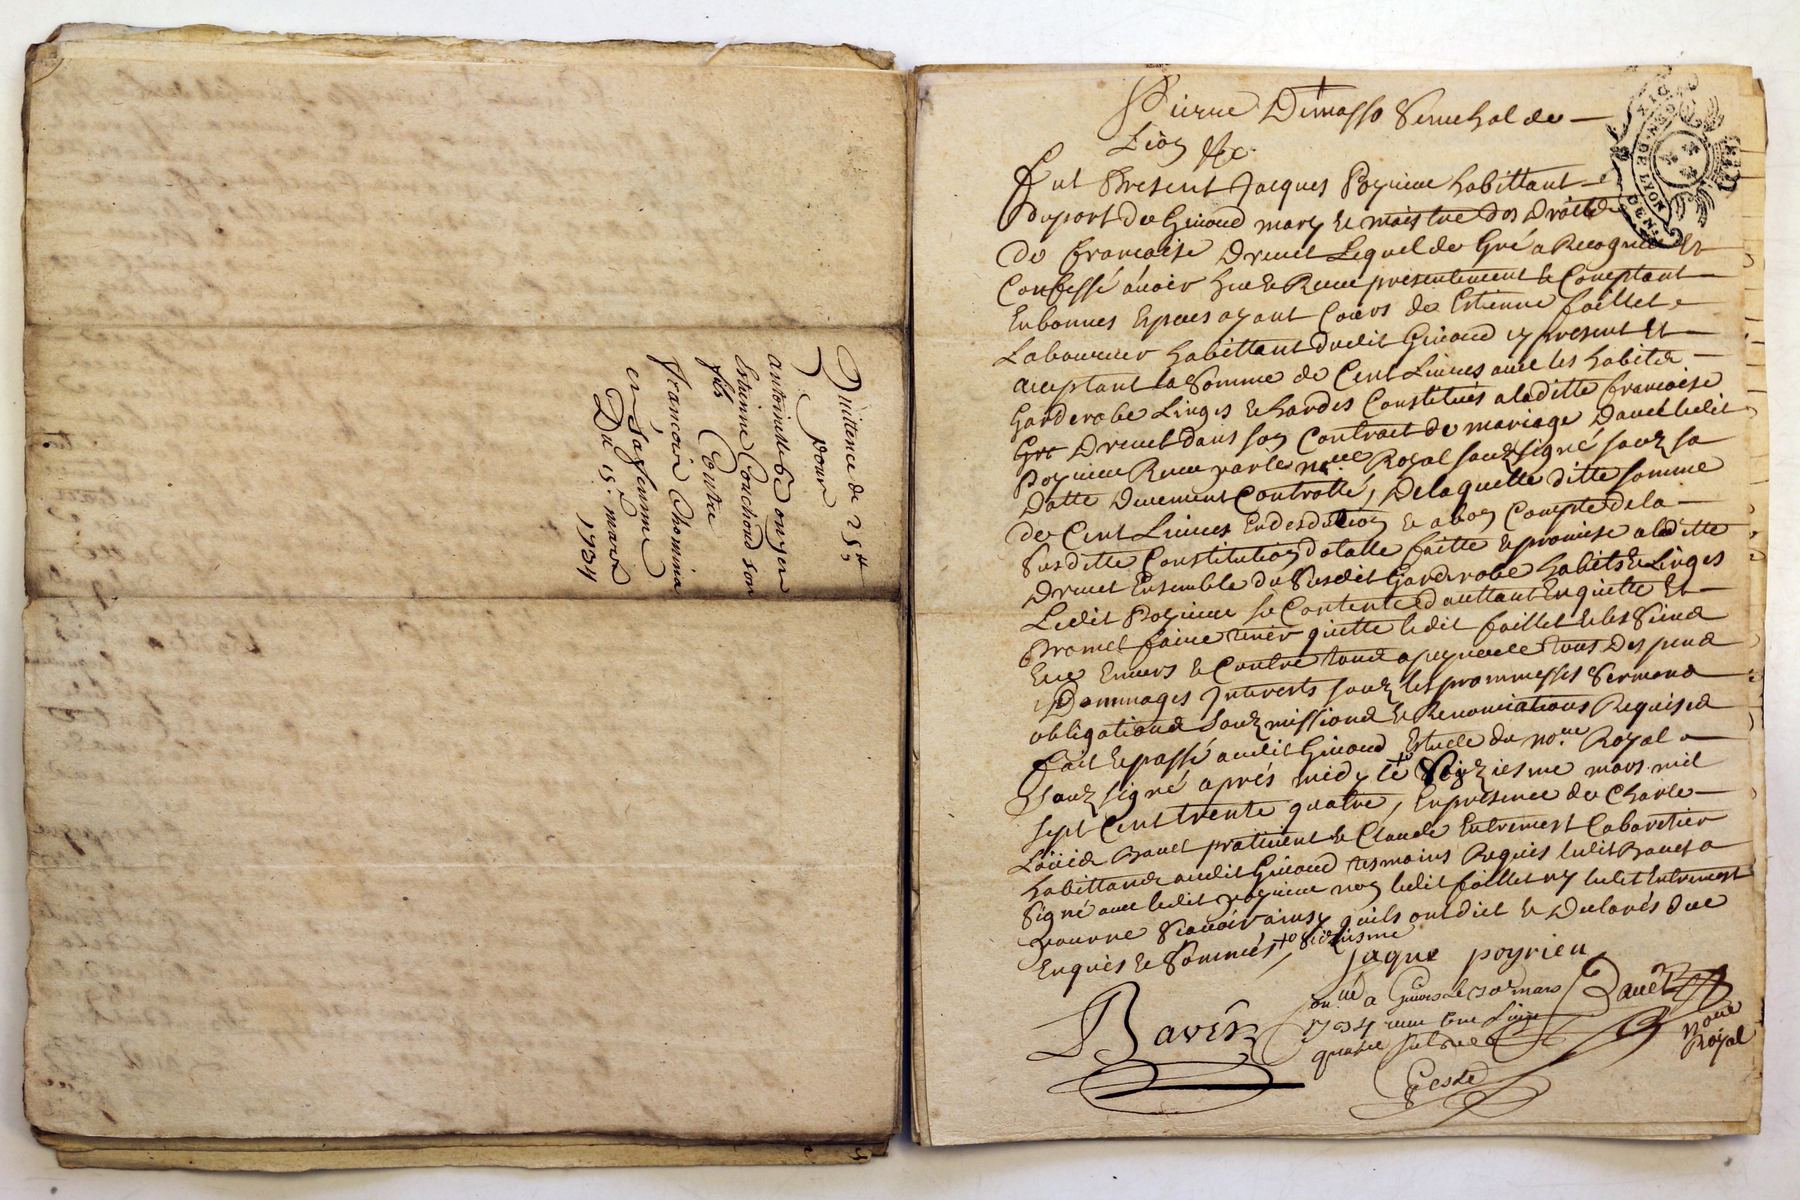 Quittence de 25ᵗᵗ
pour
antoinette be onger
Estienne Couchoud son
fils Contre
francois Thomma
et sa femme
Du 15ᵉ mars
1734
Pierre Dimasso Senechal de
Lion &c.
Fut Present Jacques Poyrieu habittant
duport de Givord mary & maistre des Droits
de francoise Drevet Lequel de Gré a Recognu Et
Confessé avoir heu & Receu presentement & Comptant
En bonnes Especes ayant Cours de Estienne faillet
Laboureur habittant dudit Givord icy present Et
aceptant la Somme de Cent Livres avec les habits
Garderobe Linges & hardes Constitués a laditte francoise
Drevet dans son Contrait de mariage Davec ledit
Poyrieu Receu par le nore Royal souzsigné souz sa
Datte Deuement Controllé, De laquelle ditte somme
de Cent Livres En desdution & a bon Compte de la
Susditte Constitution dotalle faitte & promise a laditte
Drevet Ensemble du Susdit Garderobe habits & Linges
Ledit Poyrieu se Contente Dauttant En quitte Et
Promet faire tenir quitte ledit faillet & les Siens
Envers & Contre tous a peyne de tous Despens
Dommages Interests souz les prommesses Sermens
obligations Souzmissions & Renonciations Requises
fait & passé audit Givord Estude du nore Royal
souzsigné aprés midy le mars mil
sept Cent trente quatre, En presence de Charle
Loüis Bavet pratitient & Claude Entremest Cabaretier
habittans audit Givord tesmoins Requis ledit Bavet a
Signé avec ledit poyrieu non ledit faillet ny ledit Entremest
pour ne Scavoir ainsy quils ont dict & Declarés de ce
Enquis & Sommés
Jaque poyrieu
Bavet
a Givors le mars
1734 receu Livre
quatre
Bavet
nore
Royal